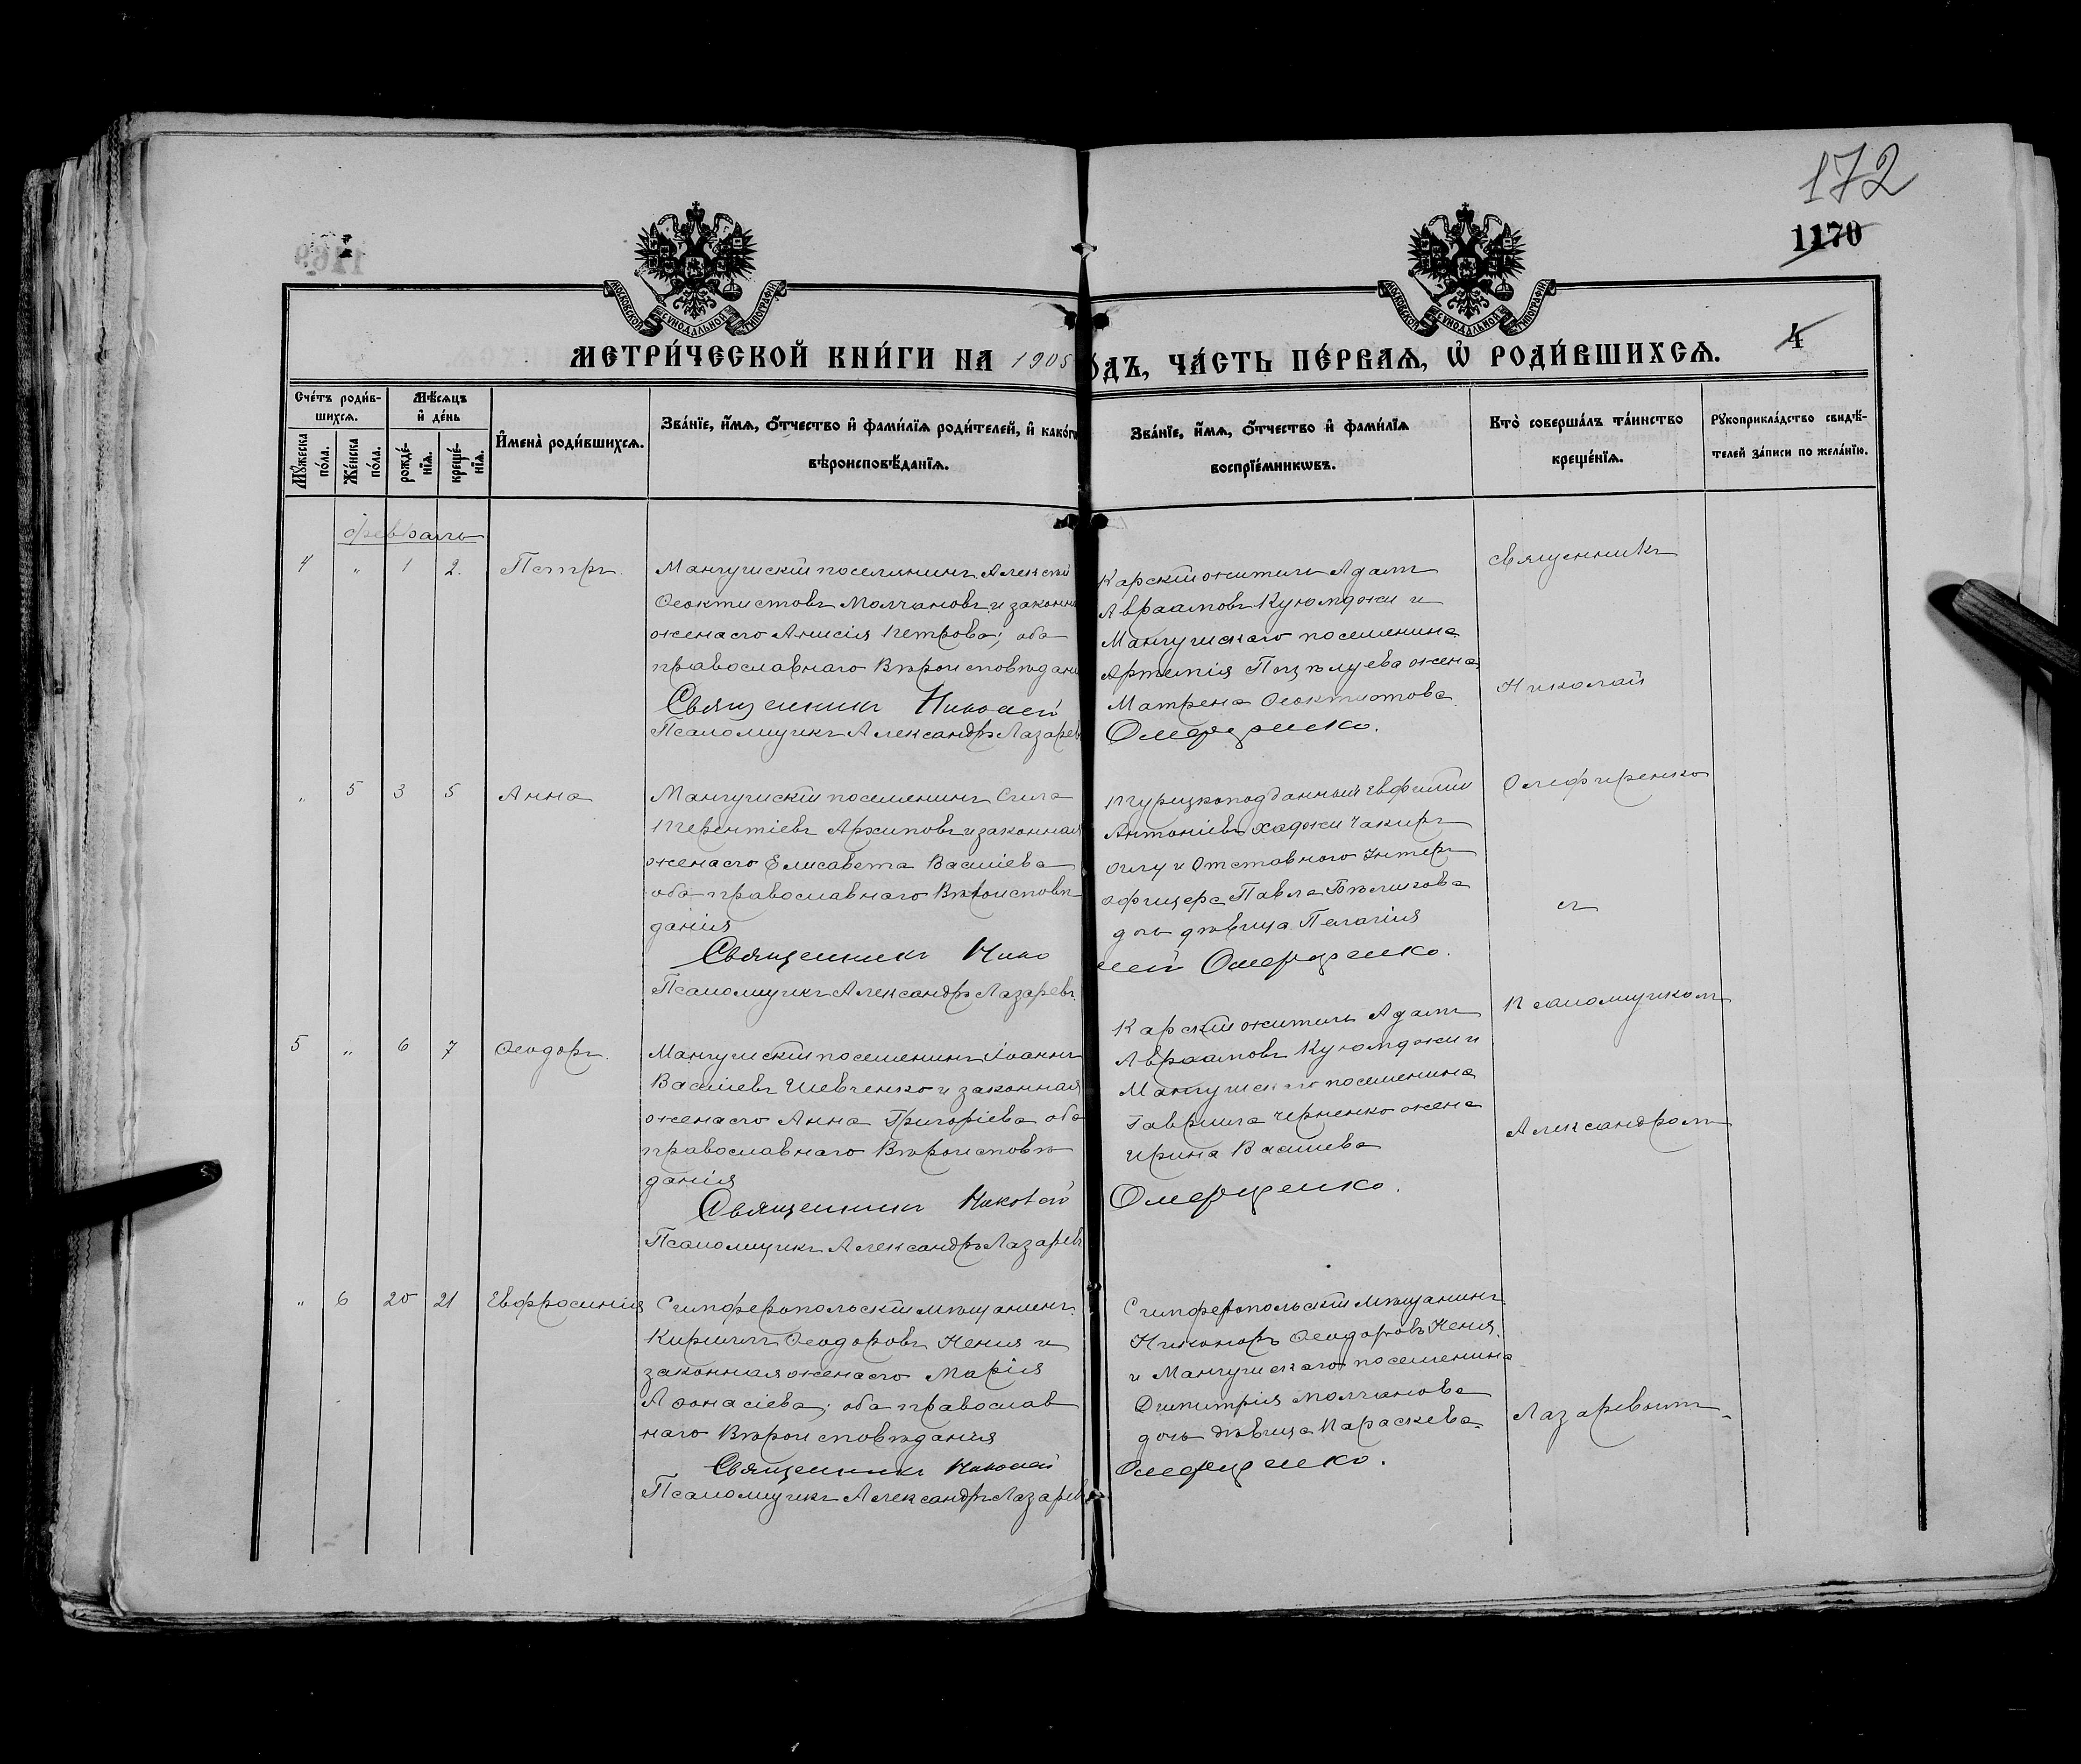 172
1170
4
МОСКОВСКОЙ СѴНОДАЛЬНОЙ ТИПОГРАФІИ
МОСКОВСКОЙ СѴНОДАЛЬНОЙ ТИПОГРАФІИ
МЕТРИ́ЧЕСКОЙ КНИ́ГИ НА 1905
ОДЪ, ЧА́СТЬ ПЕ́РВАѦ, Ѡ҆ РОДИ́ВШИХСѦ.
Сче́тъ роди́в-
шихсѧ.
Мѣ́сѧцъ
и҆ де́нь
Мꙋ́жеска
по́ла.
Же́нска
по́ла.
рожде́-
нїѧ.
креще́-
нїѧ.
И҆мена̀ роди́вшихсѧ.
Зва́нїе, и҆́мѧ, ѻ҆́тчество и҆ фами́лїѧ роди́телей, и҆ како́гѡ
вѣроисповѣ́данїѧ.
Зва́нїе, и҆́мѧ, ѻ҆́тчество и҆ фами́лїѧ
воспрїе́мникѡвъ.
Кто̀ соверша́лъ та́инство
креще́нїѧ.
Рꙋкоприкла́дство свидѣ́-
телей за́писи по жела́нїю.
Февраль
4 " 1 2. Петръ.
Мангушскій поселянинъ Алексѣй
Ѳеоктистовъ Молчановъ и законна
жена его Анисія Петрова; оба
православнаго Вѣроисповѣдані
Священникъ Николай
Псаломщикъ Александръ Лазарев
Карскій житель Адамъ
Авраамовъ Куюмджи и
Мангушскаго поселенина
Артемія Поцѣлуева жена
Матрена Ѳеоктистова
Олефиренко.
" 5 3 5 Анна
Мангушскій поселенинъ Сила
Терентіевъ Архиповъ и законная
жена его Елисавета Василіева
оба православнаго Вѣроисповѣ
данія
Священникъ Нико
Псаломщикъ Александръ Лазаревъ.
Турецкоподданный Евфимій
Антоніевъ Хаджи Чакиръ
оглу и Отставного Унтеръ
офицера Павла Бѣликова
дочь дѣвица Пелагія
лай Олефиренко.
5 " 6 7 Ѳеодоръ.
Мангушскій поселенинъ Іоаннъ
Василіевъ Шевченко и законная
жена его Анна Григоріева оба
православнаго Вѣроисповѣ
данія
Священникъ Николай
Псаломщикъ Александръ Лазаревъ
Карскій житель Адамъ
Авраамовъ Куюмджи и
Мангушскаго поселенина
Гавриила Черненко жена
Ирина Васильева
Олефиренко.
" 6 20 21 Евфросинія
Симферопольскій мѣщанинъ
Кириллъ Ѳеодоровъ Кения и
законная жена его Марія
Аѳонасіева; оба православ
наго Вѣроисповѣданія
Священникъ Николай
Псаломщикъ Александръ Лазаревъ
Симферопольскій мѣщанинъ
Никоноръ Ѳеодоровъ Кения
и Мангушскаго поселенина
Димитрія Молчанова
дочь дѣвица Параскева
Олефиренко.
Священникъ
Николай
Олефиренко
съ
Псаломщикомъ
Александромъ
Лазаревымъ.